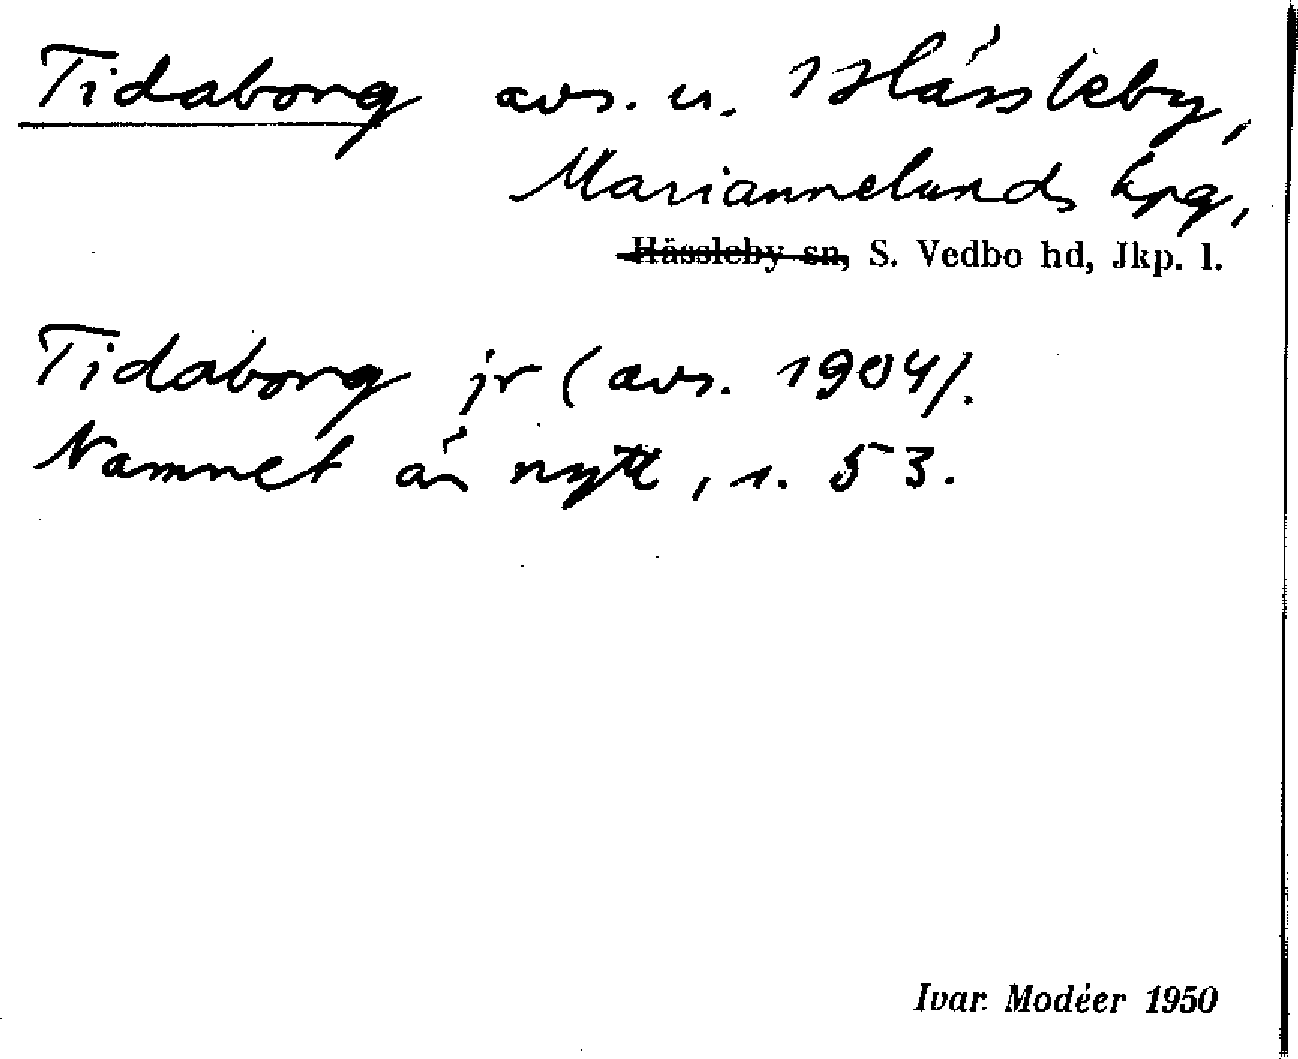 Tidaborg avs. u. 1 Hässleby,
Mariannelunds kpg,
Hässleby sn, S. Vedbo hd, Jkp. l.
Tidaborg jr (avs. 1904).
Namnet är nytt, s. 53.
Ivar Modéer 1950